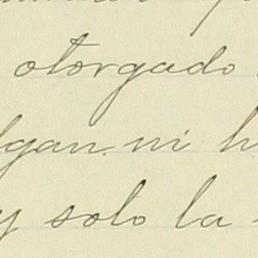 otorgado
lgan ni h
y solo la